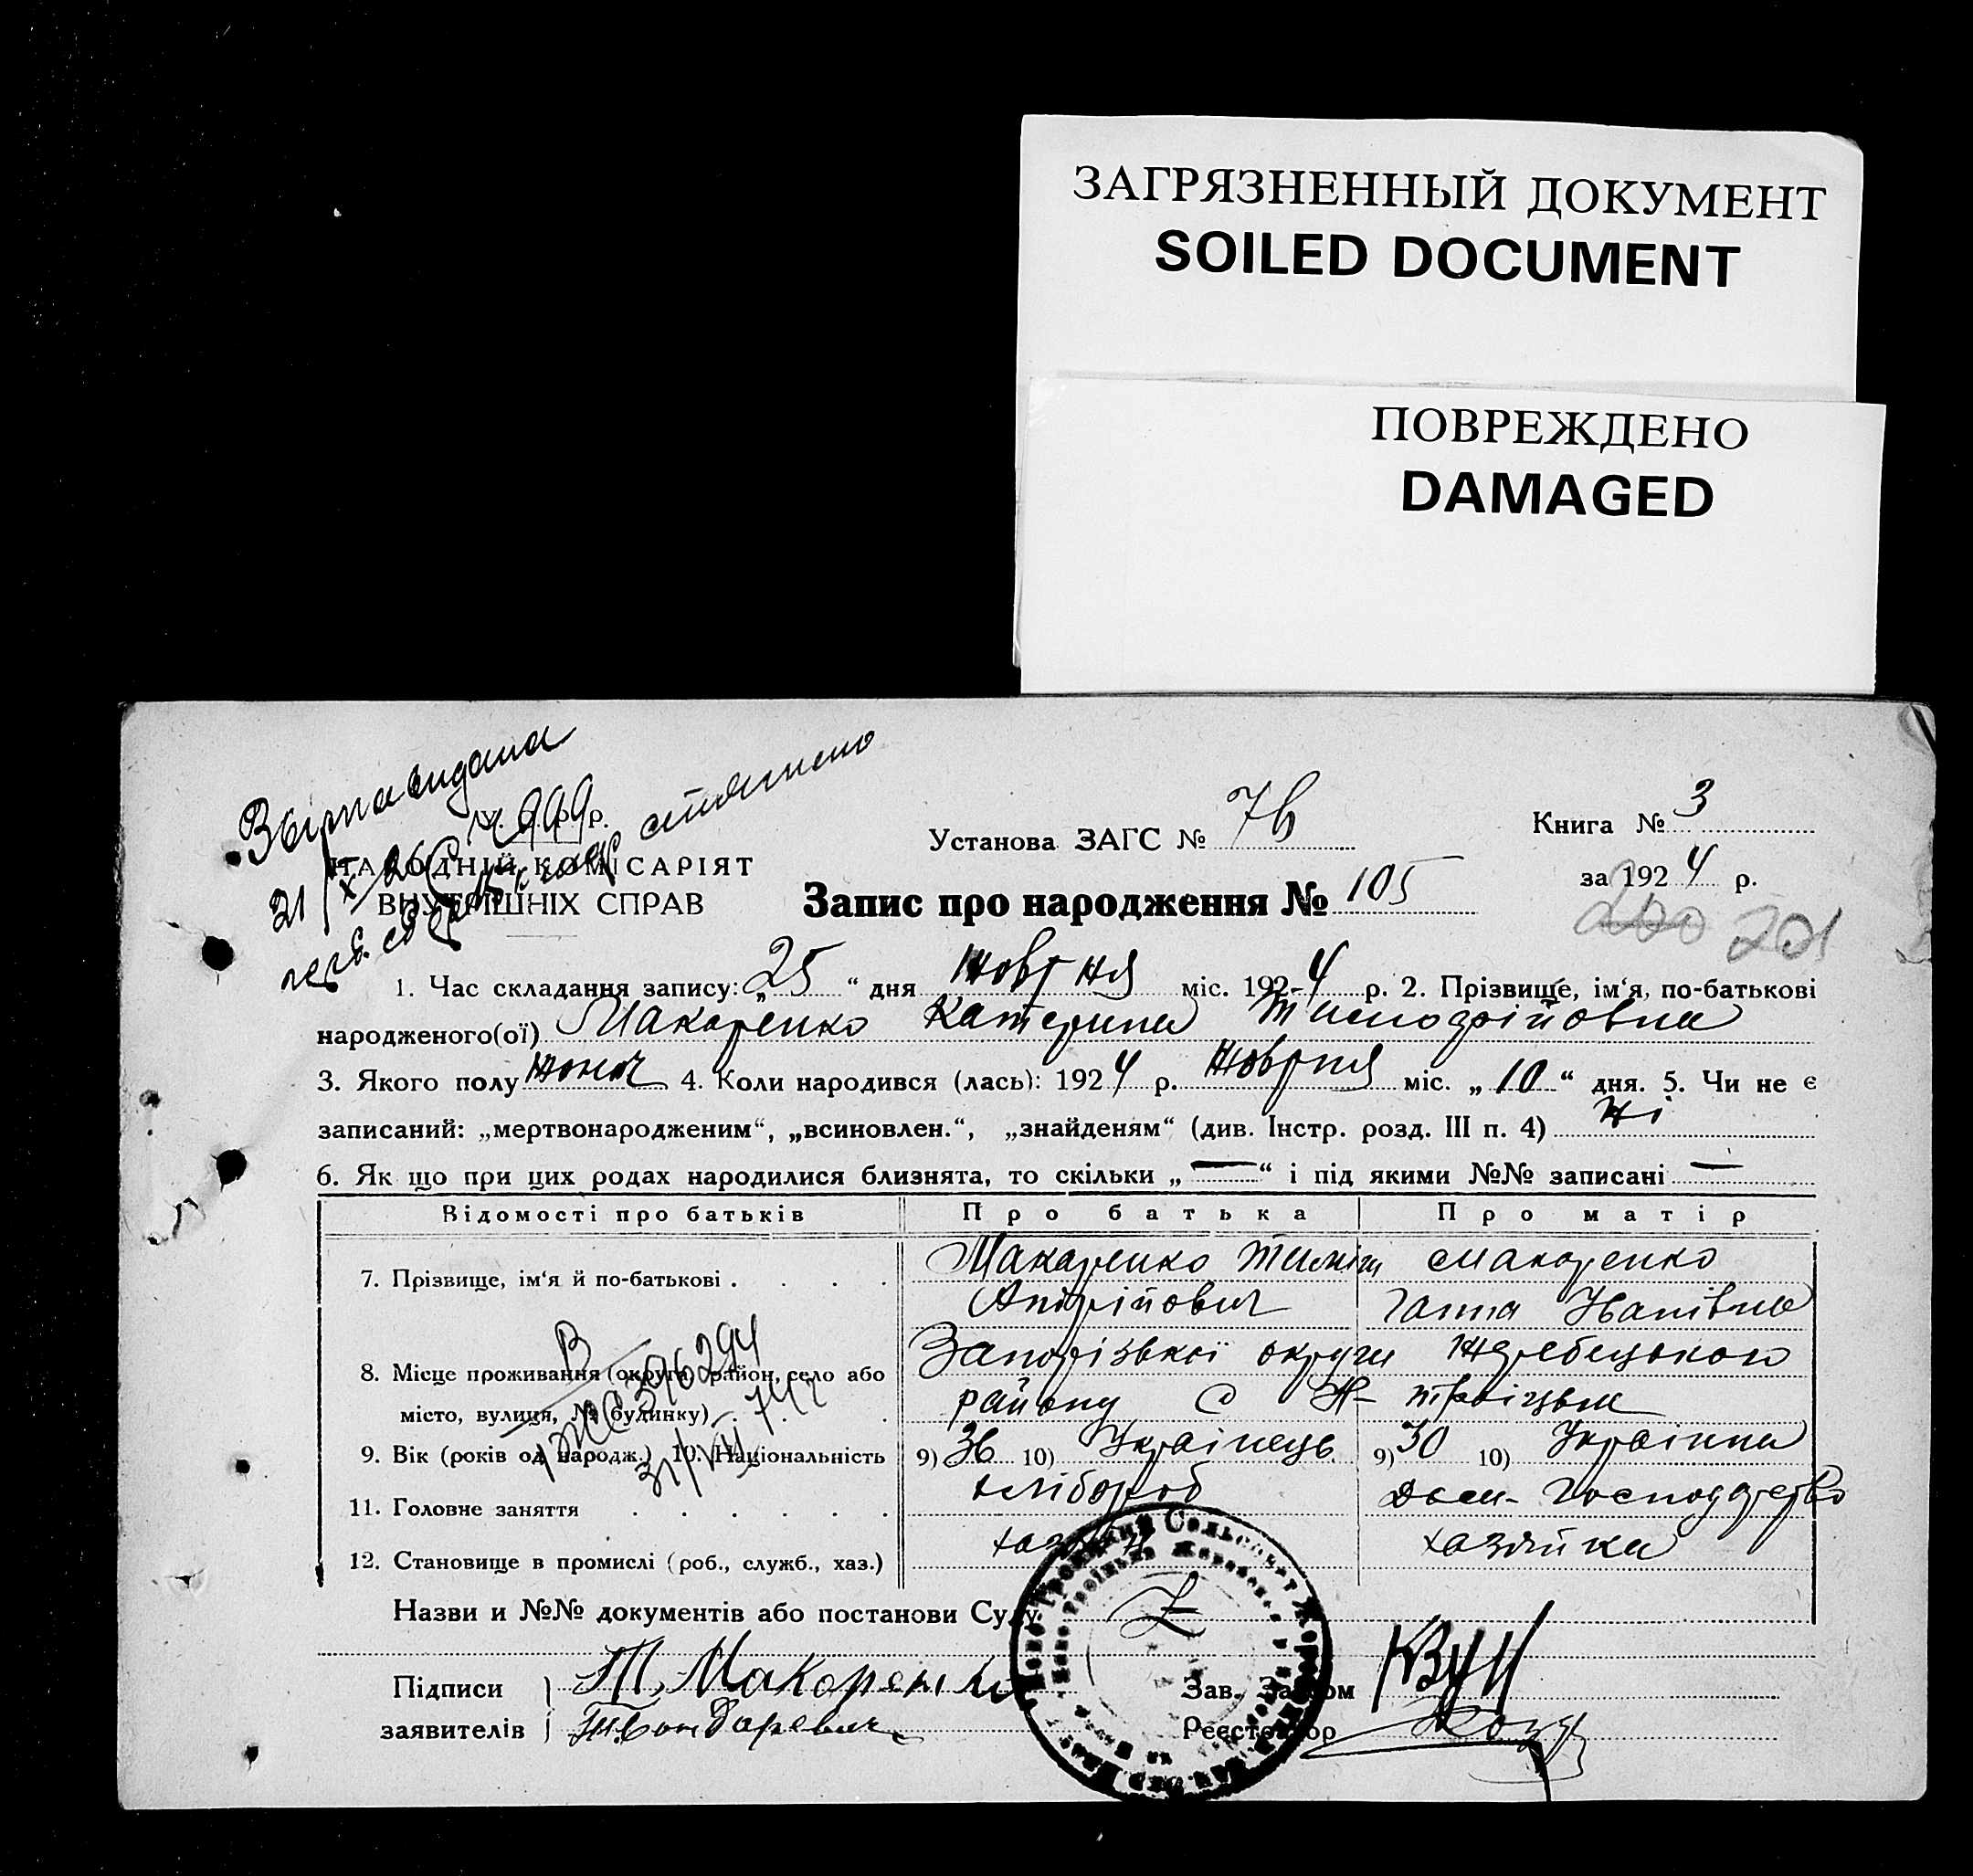 ЗАГРЯЗНЕННЫЙ ДОКУМЕНТ
SOILED DOCUMENT
ПОВРЕЖДЕНО
DAMAGED
Установа ЗАГС № 7б
Книга № 3
НАРОДНІЙ КОМІСАРІЯТ
ВНУТРІШНІХ СПРАВ
за 1924 р.
Запис про народження № 105
200 201
1. Час складання запису: „25“ дня жовтня міс. 1924 р. 2. Прізвище, ім‘я, по-батькові
народженого(ої) Макаренко Катерина
3. Якого полу жіноч 4. Коли народився (лась): 1924 р. жовтня міс. „10“ дня. 5. Чи не є
записаний: „мертвонародженим“, „всиновлен.“, „знайденям“ (див. Інстр. розд. III п. 4) ні
6. Як що при цих родах народилися близнята, то скільки „—“ і під якими №№ записані —
Відомості про батьків Про батька Про матір
7. Прізвище, ім‘я й по-батькові . . . . Макаренко Макаренко
Андрійович Ганна Іванівна
8. Місце проживання (округа, район, село або Запорізької округи Жеребецького
місто, вулиця, № будинку) . . . району с Н-Троїцьке
9. Вік (років од народж.) 10. Національність 9) 36 10) Українець 9) 30 10) Українка
11. Головне заняття . . . . . . хлібороб дом- господарство
12. Становище в промислі (роб., служб., хаз.) хазяїн хазяйка
Назви и №№ документів або постанови Суду
Підписи Т. Макаренко Зав. Загсом
заявителів Реєстратор